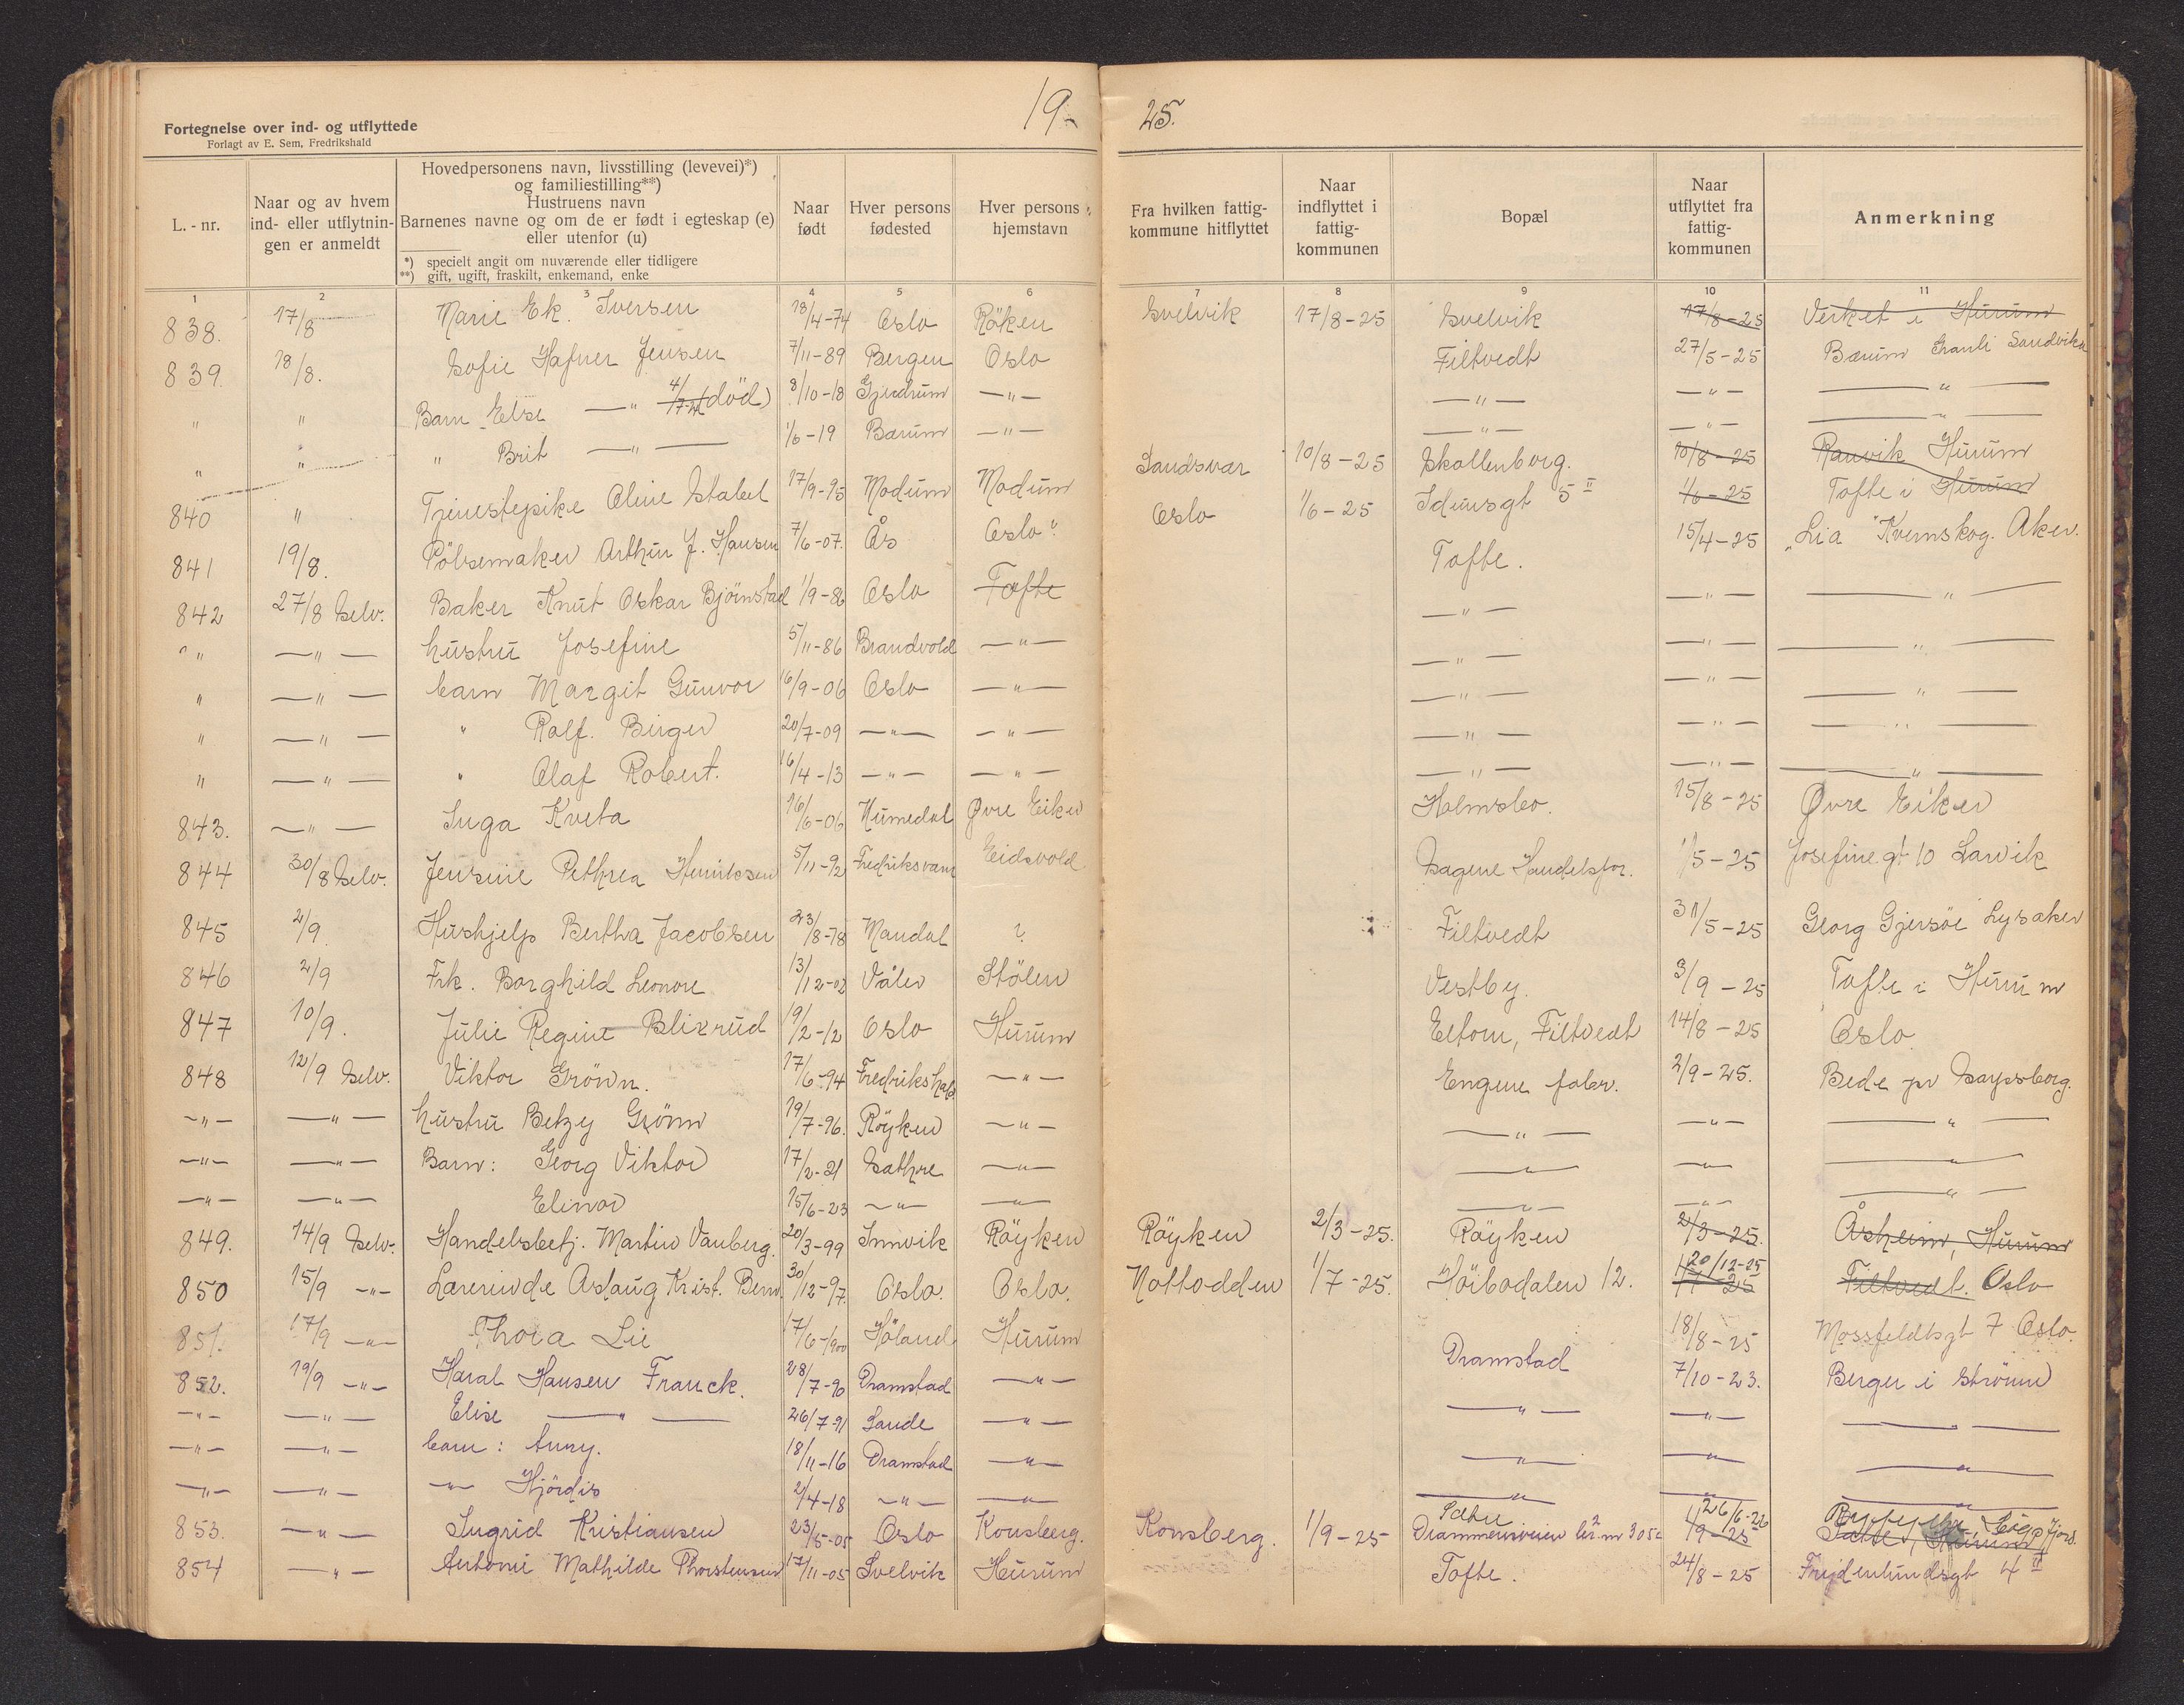 19 25.
Fortegnelse over ind- og utflyttede
Forlagt av E. Sem, Fredrikshald
L. - nr.
Naar og av hvem
ind- eller utflytnin-
gen er anmeldt
Hovedpersonens navn, livsstilling (levevei)*)
og familiestilling**)
Hustruens navn
Barnenes navne og om de er født i egteskap (e)
eller utenfor (u)
*) specielt angit om nuværende eller tidligere
**) gift, ugift, fraskilt, enkemand, enke
Naar
født
Hver persons
fødested
Hver persons
hjemstavn
Fra hvilken fattig-
kommune hitflyttet
Naar
indflyttet i
fattig-
kommunen
Bopæl
Naar
utflyttet fra
fattig-
kommunen
Anmerkning
1 2 3 4 5 6 7 8 9 10 11
838. 17/8 Marie Ek. Iversen 18/4-74 Oslo Röken Svelvik 17/8-25 Svelvik 17/8-25 Verket i Hurum
839. 18/8. Sofie Hafner Jensen 7/11-89 Bergen Oslo Filtvedt 27/5-25 Bærum Granli Sandvika
" " Barn Else —"— død) 8/10-18 Gjerdrum —"— —"— —"— —"—
" " " Brit —"— 1/6-19 Bærum —"— —"— —"— —"—
840 " Tjenestepike Oline Stabel 17/9-95 Modum Modum Sandsvær 10/8-25 Skollenborg. 10/8-25 Ranvik Hurum
841 19/8. Pölsemaker Arthur J. Hansen 7/6-07. Ås Oslo". Oslo 1/6-25 Idunsgt 5 II 1/6-25 Tofte i Hurum
842 27/8 Selv. Baker Knut Oskar Björnstad 1/9-86 Oslo Tofte Tofte. 15/4-25 "Lia" Kvernskog. Aker.
" —"— hustru Josefine 5/11-86 Brandvold —"— —"— —"— —"—
" —"— barn Margit Gunvor 16/9-06 Oslo —"— —"— —"— —"—
" —"— " Rolf. Birger 20/7-09 —"— —"— —"— —"— —"—
" —"— " Olaf Robert. 16/4-13 —"— —"— —"— —"— —"—
843. —"— Inga Kveta 16/6-06 Numedal Øvre Eiker Holmsbo. 15/8-25 Øvre Eiker
844 30/8 Selv. Jensine Pethrea Henriksen 5/11-92 Fredriksværn Eidsvold Sagene Handelsfor. 1/5-25 Josefinegt 10 Larvik
845 2/9. Hushjelp Bertha Jacobsen 23/8-78 Mandal ? Filtvedt 31/5-25 Georg Gjersöe Lysaker
846 2/9 Frk. Borghild Leonore 13/12-02 Våler Stölen Vestby. 3/9-25 Tofte i Hurum
847 10/9. Julie Regine Blixrud 19/2-12 Oslo Hurum Eltorn, Filtvedt 14/8-25 Oslo
848 12/9 Selv. Viktor Grönn. 17/6-94 Fredrikshald —"— Engene fabr. 2/9-25. Bede pr Sarpsborg.
—"— —"— hustru Betzy Grönn 19/7-96. Röyken —"— —"— —"— —"—
—"— —"— Barn: Georg Viktor 17/2-21 Sathre —"— —"— —"— —"—
—"— —"— Elinor 15/6-23 —"— —"— —"— —"— —"—
849. 14/9 Selv. Handelsbetj. Martin Vanberg. 20/3-99 Innvik Röyken Röyken 2/3-25. Röyken 2/3-25. Åsheim, Hurum
850 15/9 —"— Lærerinde Aslaug Krist. Bern. 30/12-97. Oslo. Oslo. Nottodden 1/7-25. Höibodalen 12. 20/12-25 1/7-25 Filtvedt. Oslo
851. 17/9 —"— Thora Lie 17/6-1900 Höland Hurum 18/8-25 Mossfeldtsgt 7 Oslo.
852. 19/9 —"— Haral Hansen Franck. 28/7-90 Dramstad —"— Dramstad 7/10-23. Berger i Strömm
—"— —"— Elise —"— 26/7-91 Sande —"— —"— —"— —"—
—"— —"— barn: Anny. 18/11-16 Dramstad —"— —"— —"— —"—
—"— —"— —"— Hjördis 2/4-18 —"— —"— —"— —"— —"—
853. —"— Ingrid Kristiansen 23/5-05 Oslo Konsberg. Konsberg. 1/9-25 Drammensveien 26/6-26 1/9-25
854 —"— Antonie Mathilde Thorstensen 17/11-05 Svelvik Hurum Tofte. 24/8-25 Frydenlundsgt 4 II